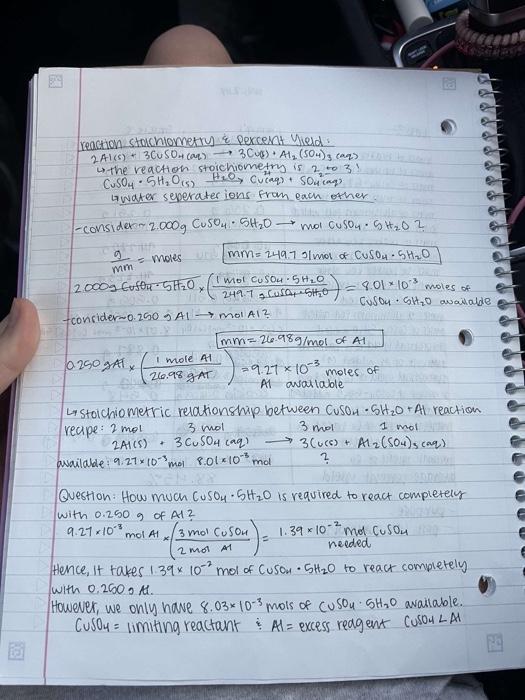 reaction stoichiometry & percent yield:
2Al(s) + 3CuSO4(aq) → 3Cu(s) + Al2(SO4)3(aq)
↳ the reaction stoichiometry is 2 to 3!
CuSO4 · 5H2O(s) H2O→ Cu2+(aq) + SO4 2-(aq)
↳ water seperates ions from each other
-consider- 2.000g CuSO4 · 5H2O → mol CuSO4 · 5H2O ?
g/mm = moles mm = 249.7 g/mol of CuSO4 · 5H2O
2.000g CuSO4 · 5H2O × (1 mol CuSO4 · 5H2O / 249.7 g CuSO4 · 5H2O) = 8.01 × 10-3 moles of
CuSO4 · 5H2O available
-concider- 0.250 g Al → mol Al?
mm = 26.98g/mol of Al
0.250gAl × (1 mole Al / 26.98 g Al) = 9.27 × 10-3 moles of
Al available
↳ stoichiometric relationship between CuSO4 · 5H2O + Al reaction
recipe: 2 mol 3 mol 3 mol 1 mol
2Al(s) + 3CuSO4(aq) → 3Cu(s) + Al2(SO4)3(aq)
available: 9.27×10-3 mol 8.01×10-3 mol ?
Question: How much CuSO4 · 5H2O is required to react completely
with 0.250 g of Al?
9.27 ×10-3 mol Al × (3 mol CuSO4 / 2 mol Al) = 1.39 × 10-2 mol CuSO4
needed
Hence, it takes 1.39 × 10-2 mol of CuSO4 · 5H2O to react completely
with 0.250 g Al.
However, we only have 8.03×10-3 mols of CuSO4 · 5H2O available.
CuSO4 = limiting reactant & Al = excess reagent CuSO4 < Al